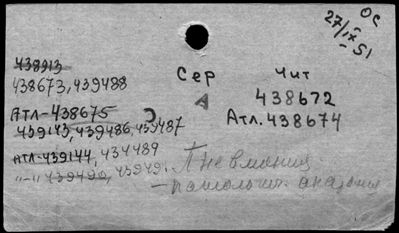 ОС
27/IX-51
438913
438673, 439488
Атл-438675
439143, 439486, 439487
Атл-439144, 439489
"-" 439490, 43949.
Сер
А
Чит
438672
Атл. 438674
Пневмония
- патологич. анатомия